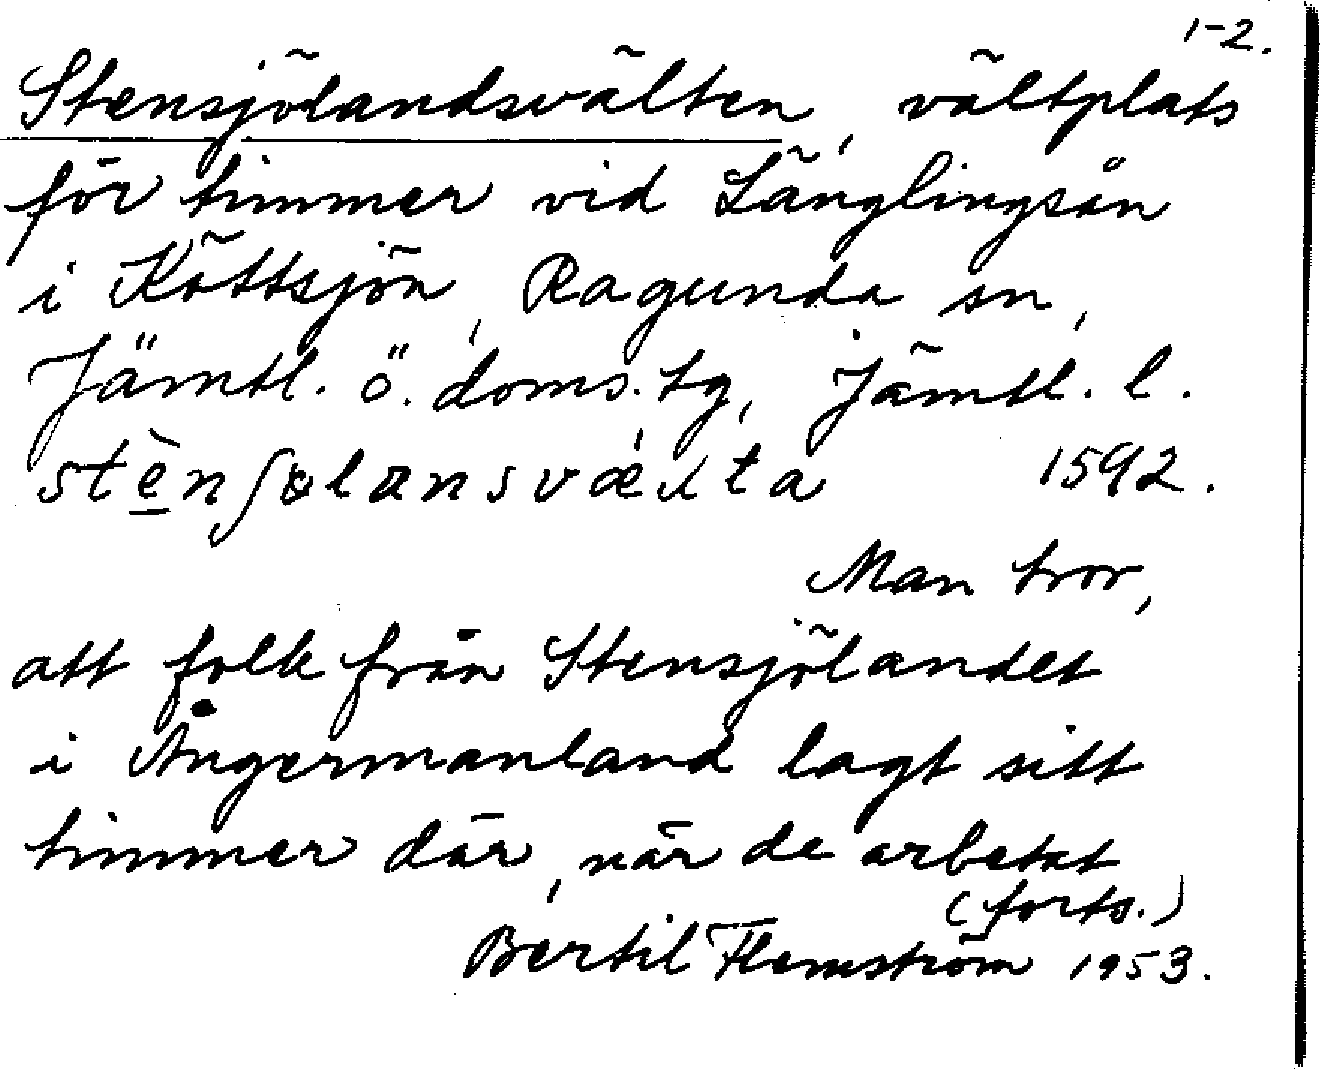 1-2.
Stensjölandsvälten, vältplats
för timmer vid Länglingsån
i Köttsjön, Ragunda sn,
Jämtl. ö. doms. tg, Jämtl. l.
stènʃɵlansvæɹta 1592.
Man tror,
att folk från Stensjölandet
i Ångermanland lagt sitt
timmer där, när de arbetat
(forts.)
Bertil Flemström 1953.